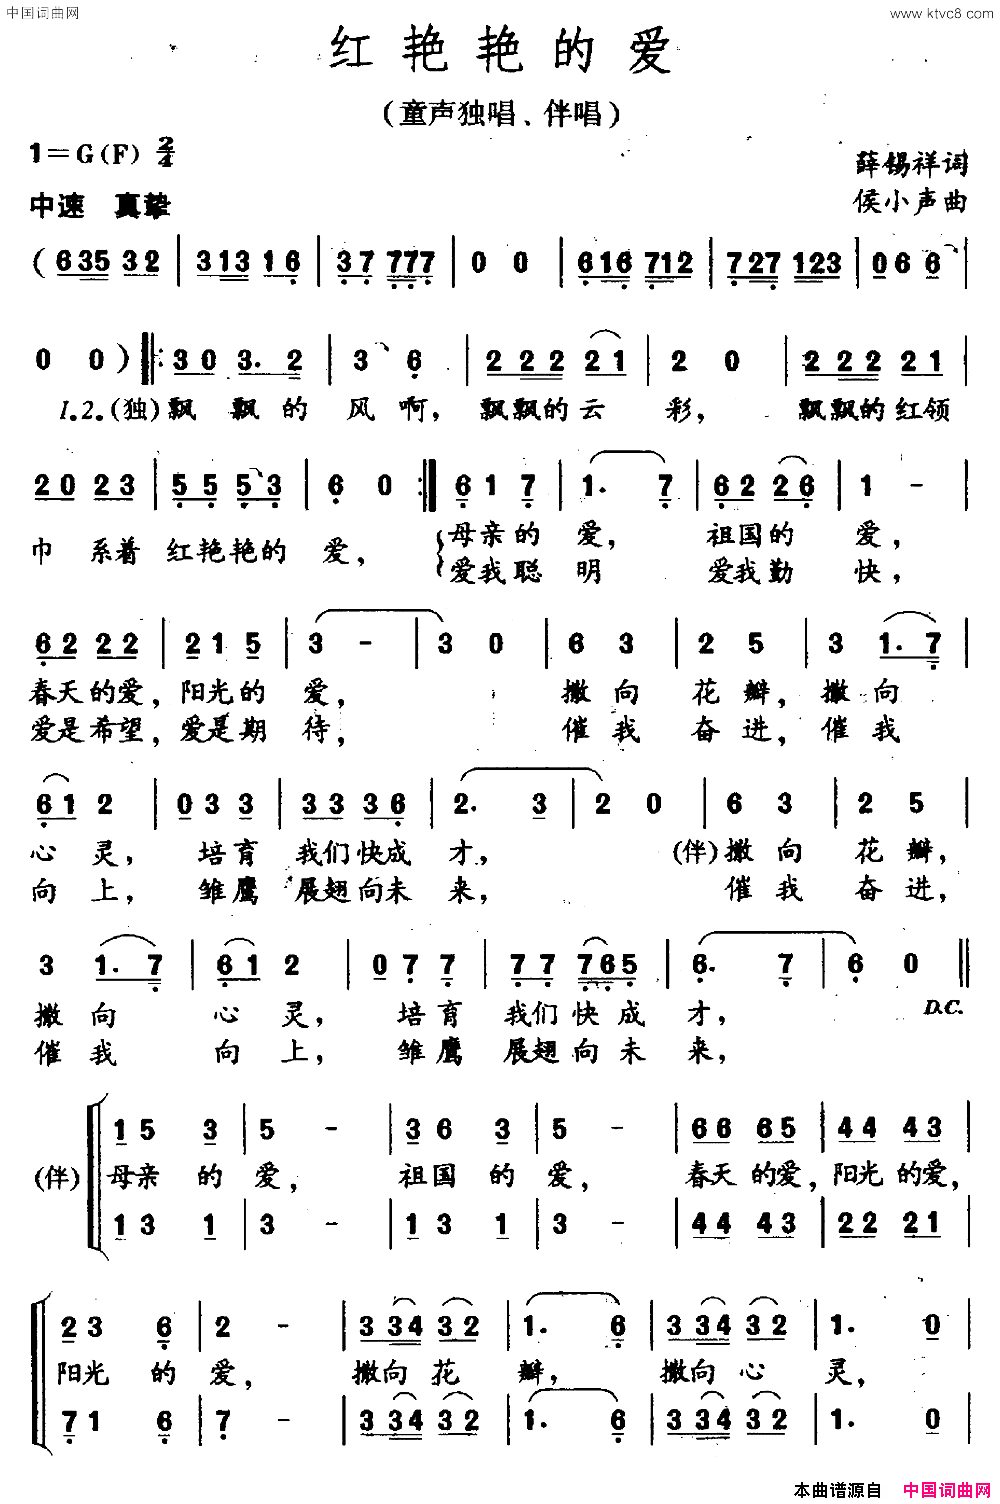 中国词曲网 www.ktvc8.com
红艳艳的爱
(童声独唱、伴唱)
1=G(F) 2/4
薛锡祥词
中速 真挚
侯小声曲
(635 32 | 313 16 | 37 777 | 0 0 | 616 712 | 727 123 | 06 6 |
0 0 ) ‖: 30 3. 2 | 3 6 | 22 2 21 | 2 0 | 22 2 21 |
1.2.(独)飘飘的风啊,飘飘的云彩,飘飘的红领
20 23 | 55 53 | 6 0 :‖ 61 7 | 1. 7 | 62 26 | 1 - |
巾系着红艳艳的爱, 母亲的爱, 祖国的爱,
爱我聪明 爱我勤快,
62 22 | 21 5 | 3 - | 3 0 | 6 3 | 2 5 | 3 1. 7 |
春天的爱,阳光的爱, 撒向花瓣,撒向
爱是希望,爱是期待, 催我奋进,催我
61 2 | 03 3 | 33 36 | 2. 3 | 2 0 | 6 3 | 2 5 |
心灵, 培育我们快成才, (伴)撒向花瓣,
向上, 雏鹰展翅向未来, 催我奋进,
3 1. 7 | 61 2 | 07 7 | 77 765 | 6. 7 | 6 0 ‖
D.C.
撒向心灵, 培育我们快成才,
催我向上, 雏鹰展翅向未来,
15 3 | 5 - | 36 3 | 5 - | 66 65 | 44 43 |
(伴) 母亲的爱, 祖国的爱, 春天的爱,阳光的爱,
13 1 | 3 - | 13 1 | 3 - | 44 43 | 22 21 |
23 6 | 2 - | 334 32 | 1. 6 | 334 32 | 1. 0 |
阳光的爱, 撒向花瓣, 撒向心灵,
71 6 | 7 - | 334 32 | 1. 6 | 334 32 | 1. 0 |
本曲谱源自 中国词曲网